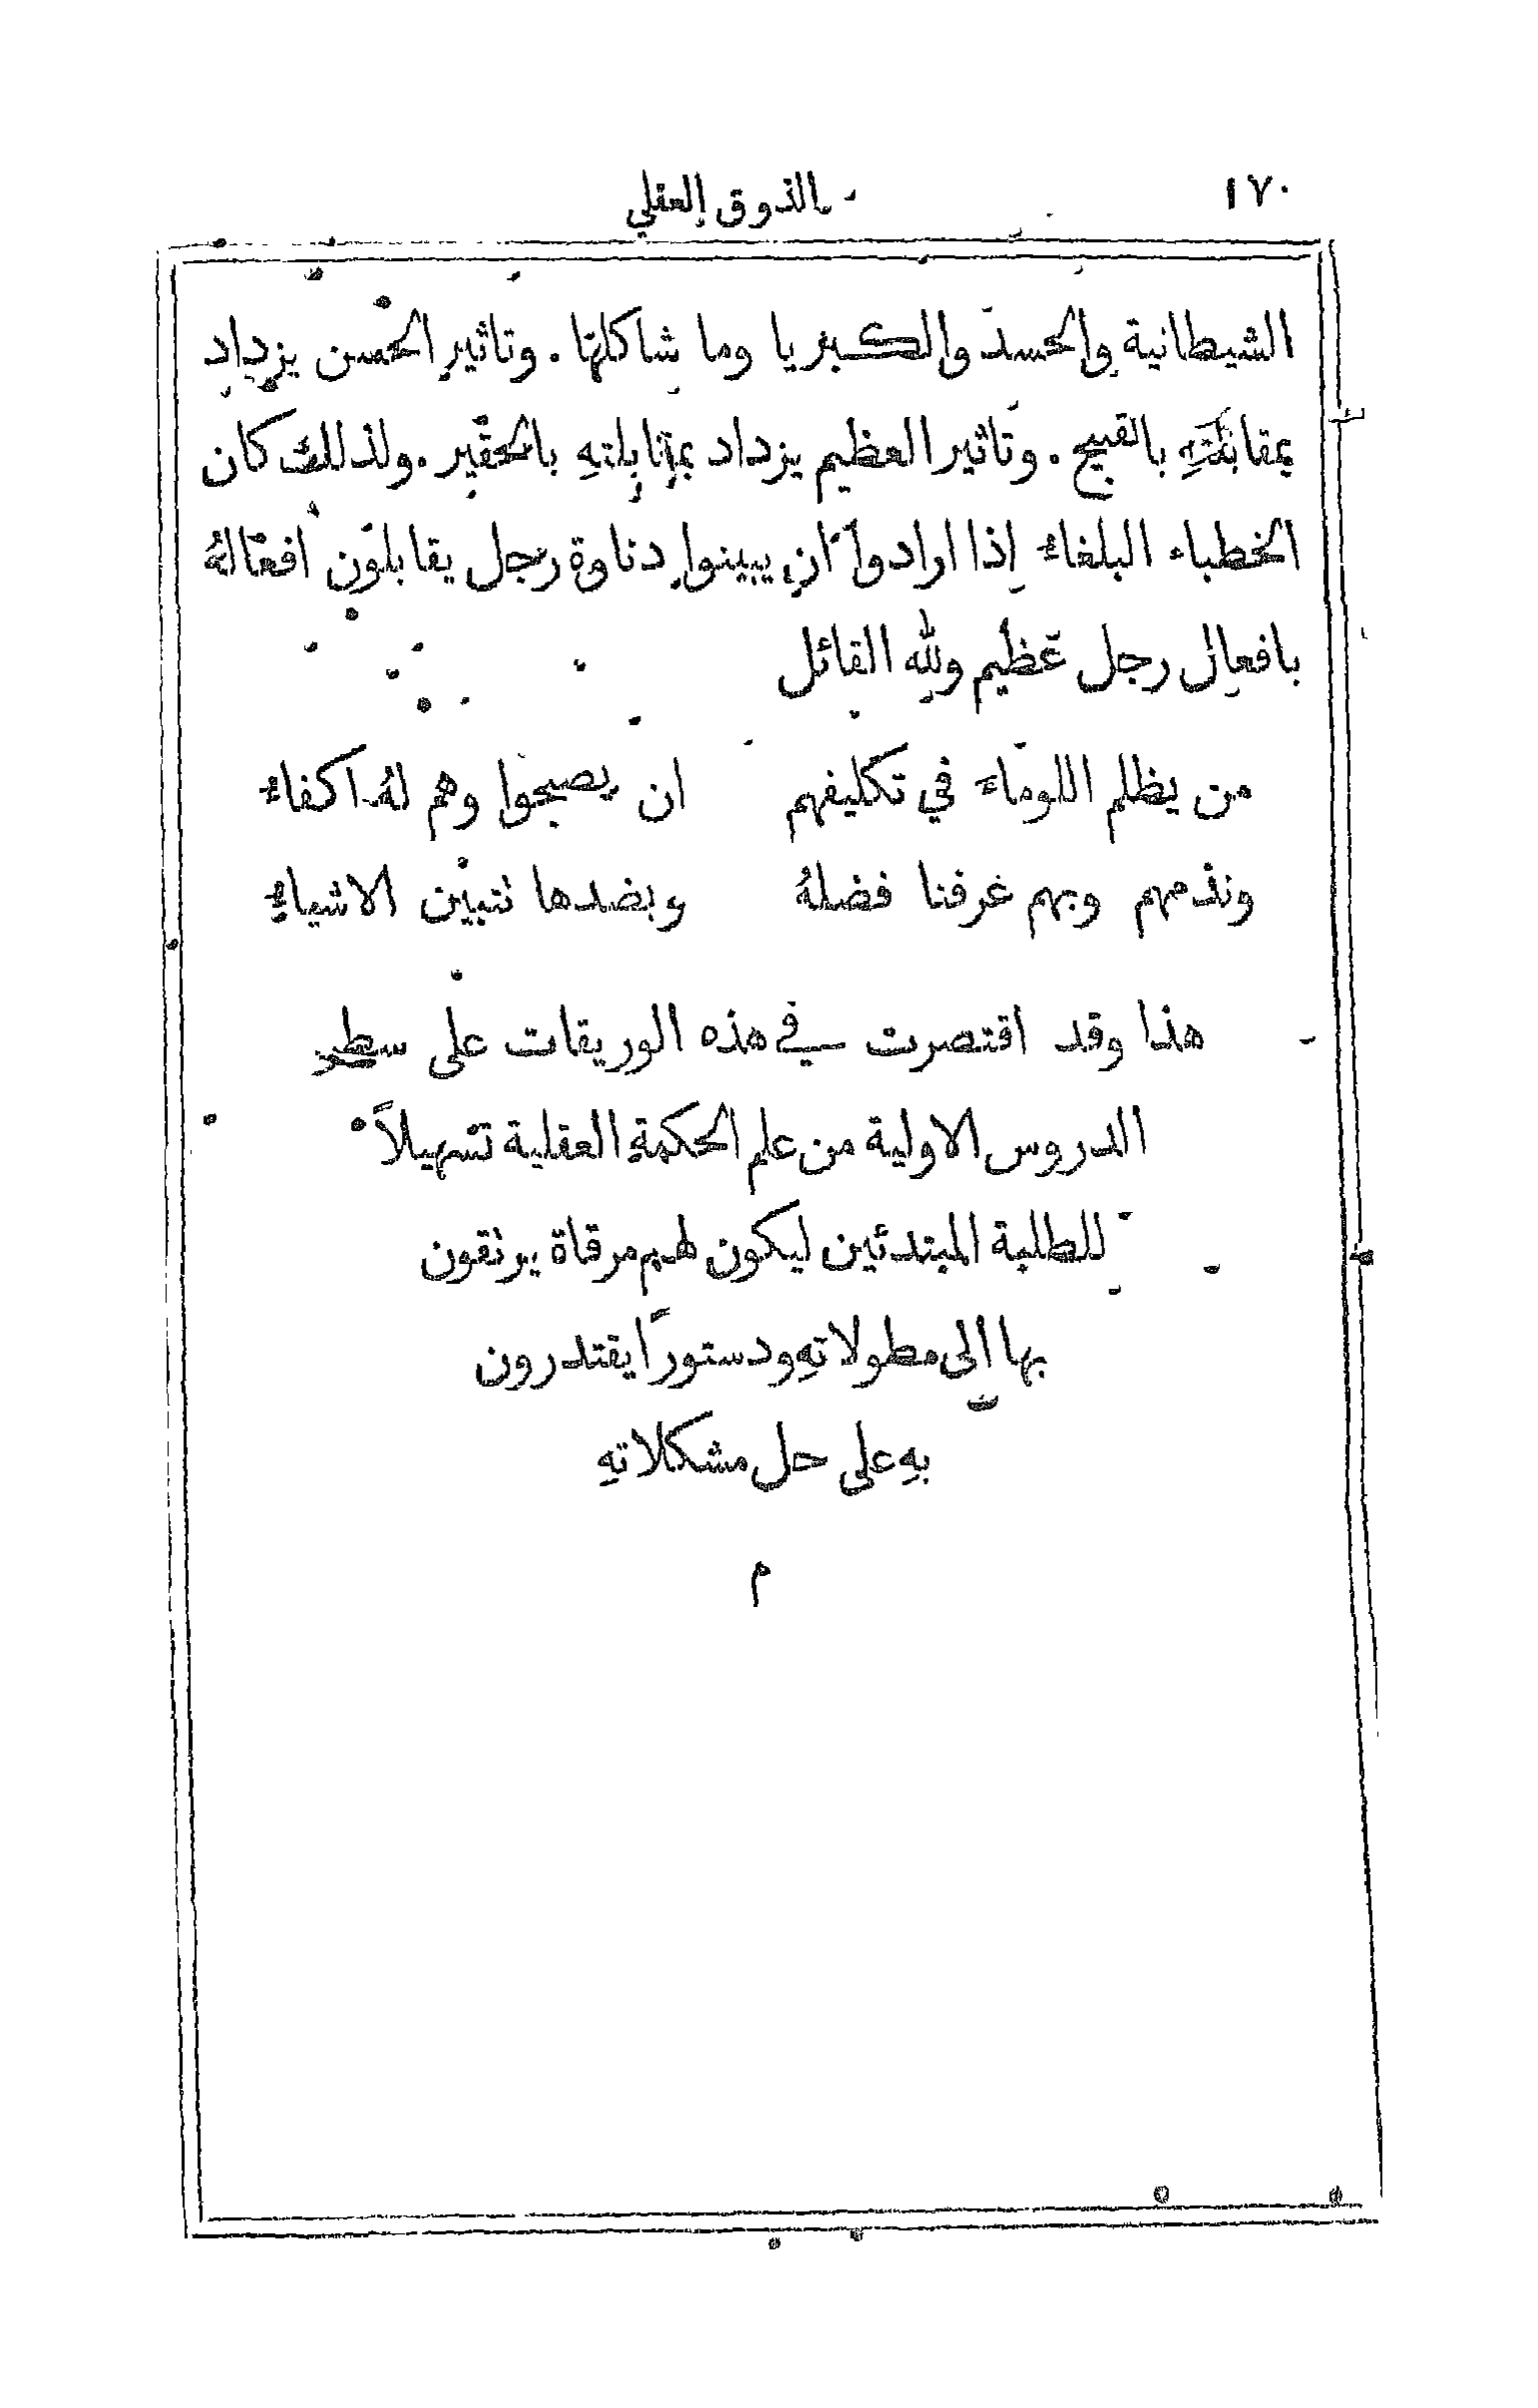 ١٧٠
الذوق العقلي
الشيطانية والحسد والكبريا وما شاكلها . وتاثير الحسن يزداد
بمقابلتهِ بالقبيح . وتاثير العظيم يزداد بمقابلتهِ بالحقير . ولذلك كان
الخطباء البلغاء إذا ارادوا ان يبينوا دناوة رجل يقابلون افعالهُ
بافعال رجل عظيم ولله القائل
من يظلم اللوماءَ في تكليفهم ان يصبحوا وهم لهُ اكفاءُ
ونذمهم وبهم عرفنا فضلهُ وبضدها تتبين الاشياءِ
هذا وقد اقتصرت في هذه الوريقات على سطر
الدروس الاولية من علم الحكمة العقلية تسهيلاً
للطلبة المبتدئين ليكون لهم مرقاة يرتقون
بها الى مطولاتهِ ودستورًا يقتدرون
بهِ على حل مشكلاتهِ
م